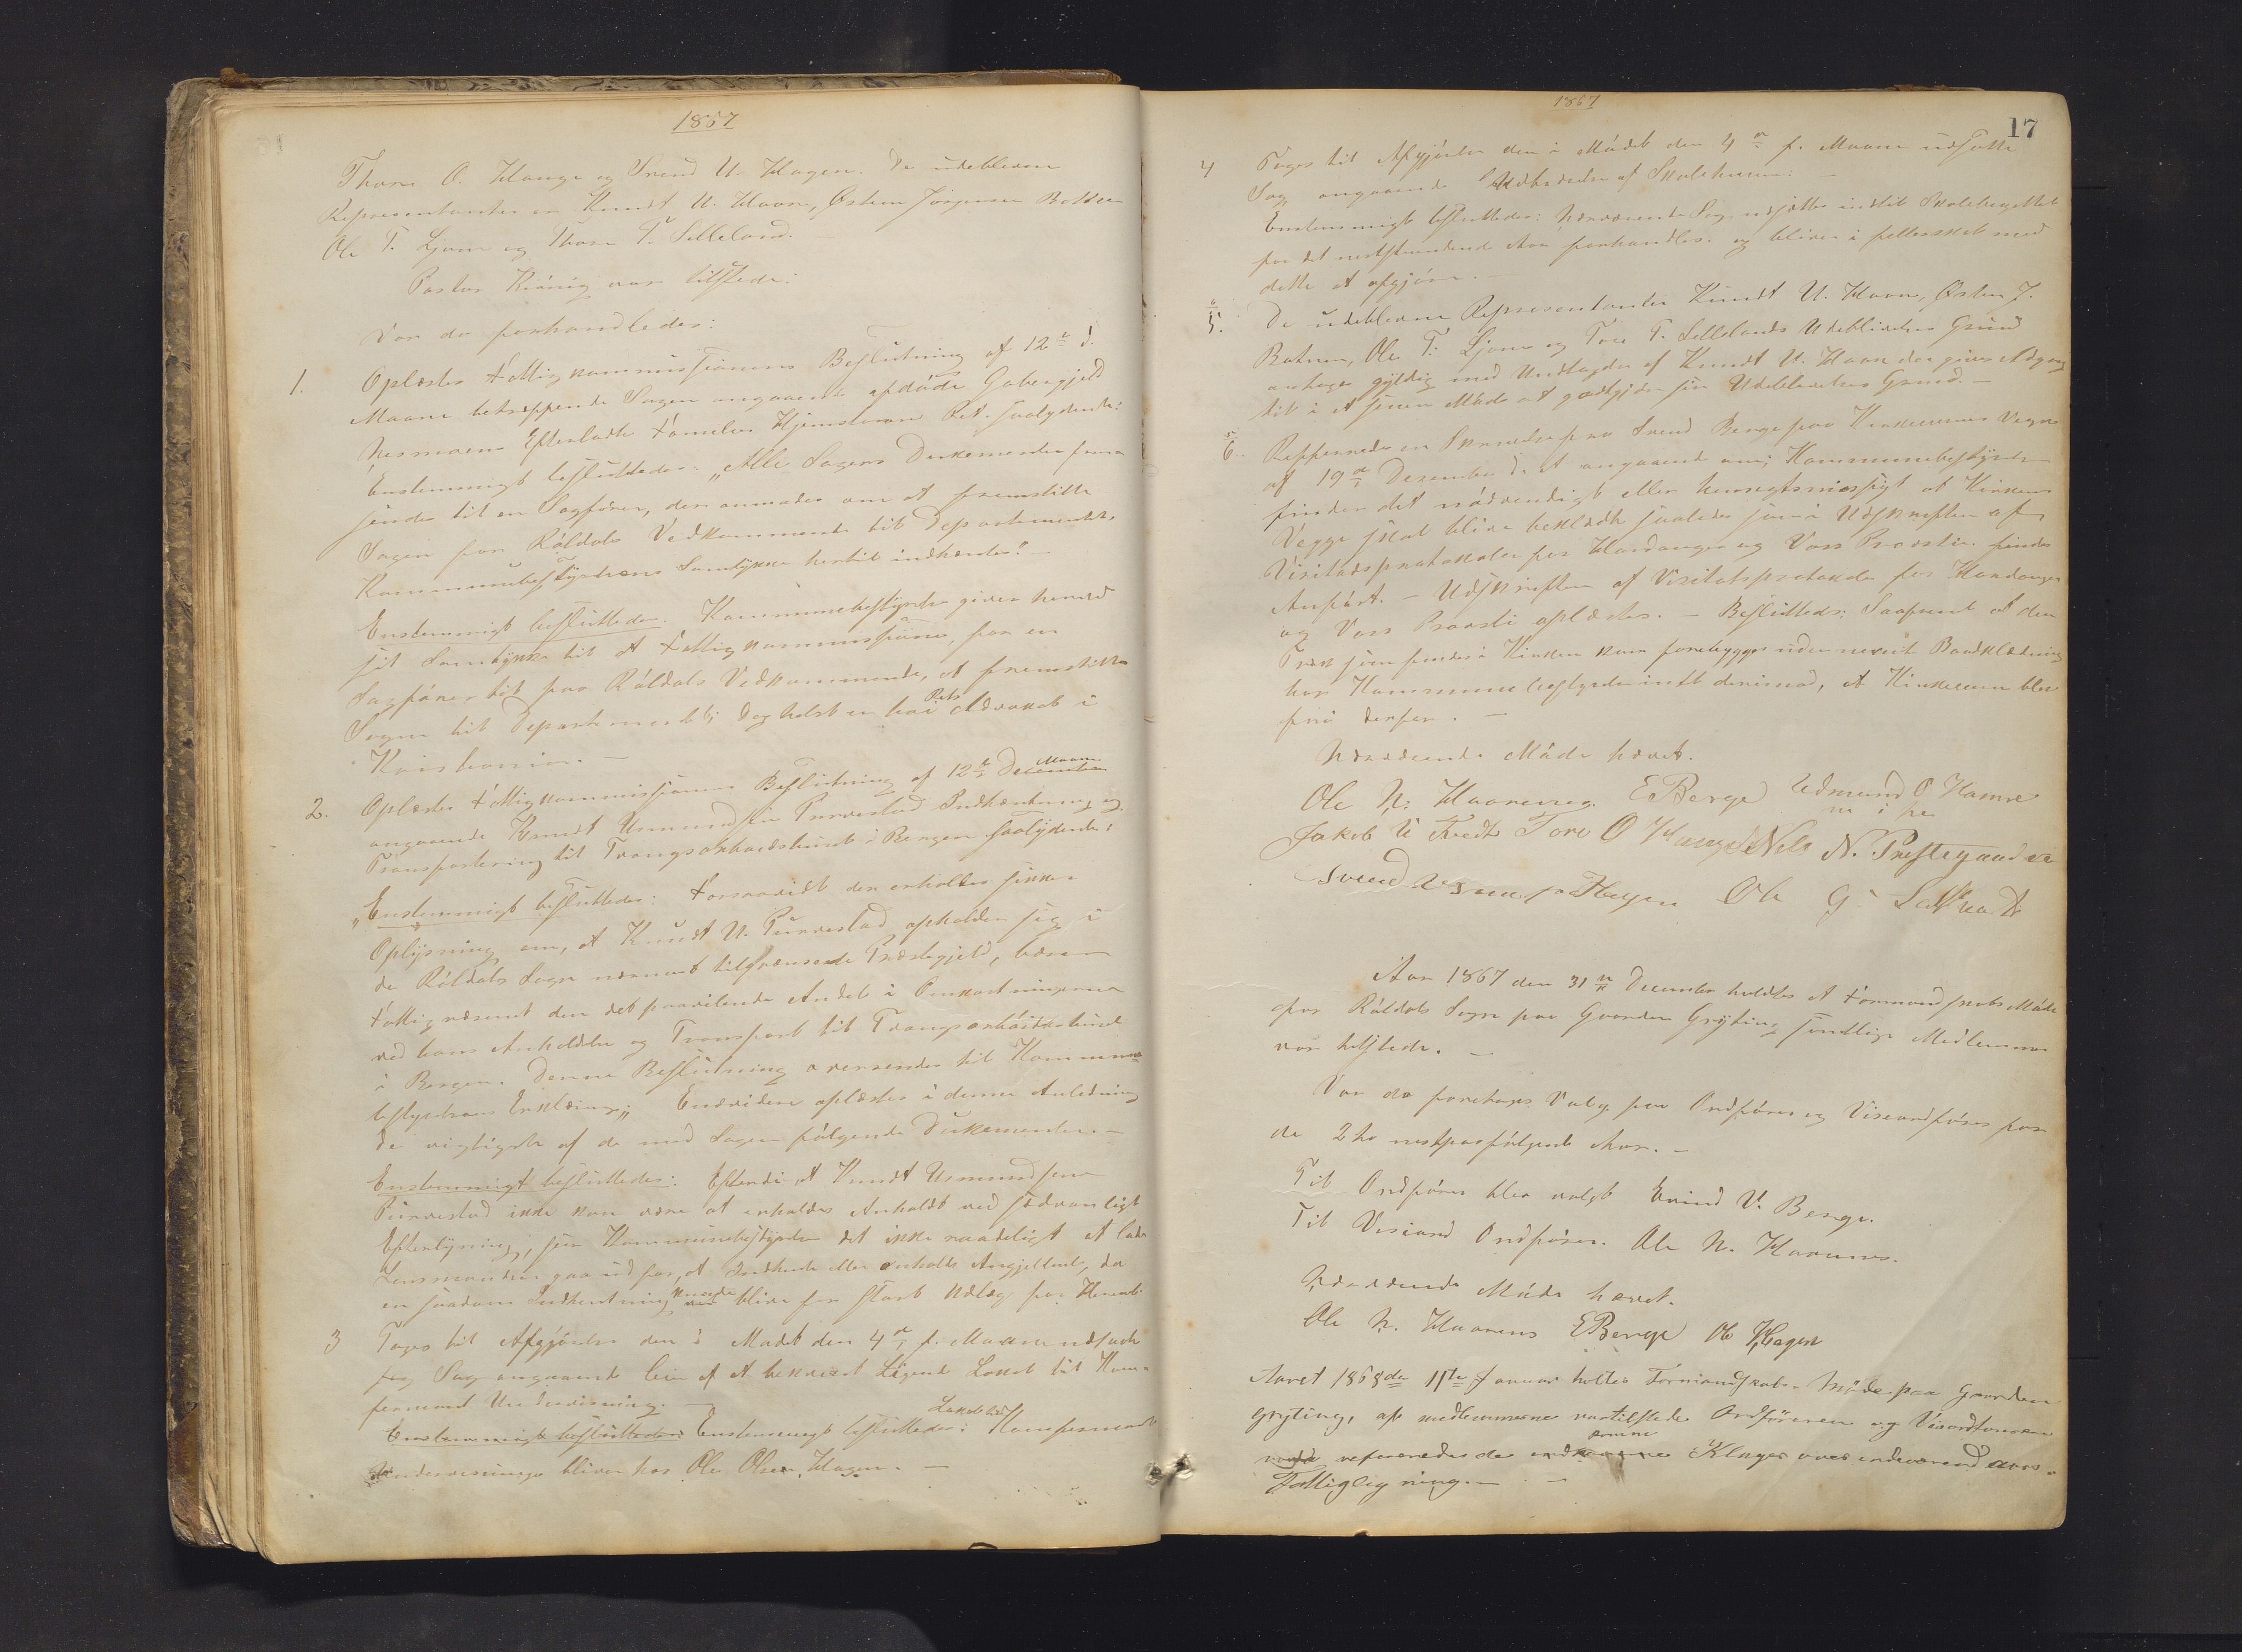 1867
Thore O. Hauge og Svend U. Hagen. De udeblevne
Representanter er Knudt U. Haare, Østen Jørgensen Botnen
Ole T. Ljone og Thore T. Selleland.
Pastor Kønig var tilstede:
Var da forhandledes:
1. Oplæstes Fattigkommissionens Beslutning af 12te d.
Maane betræffende Sagen angaaende afdøde Gabergjeld
Nesmoens Efterladte Familie Hjemstavns Ret. saalydende:
Enstemmigt besluttedes: „Alle Sagens Dukementer frem
sendes til en Sagfører, der anmodes om at fremstille
Sagen for Røldals Vedkommende til Departementet.
Kommunebestyrelsens Samtykke hertil indhentes." —
Enstemmigt besluttedes: Kommunebestyrelsen giver herved
sit Samtykke til at Fattigkommissionen, faar en
Sagfører til paa Røldals Vedkommende, at fremstille
Sagen til Departementet; dog helst en høi Rets Advokat i
Kristiania. —
2. Oplæstes Fattigkommissionens Beslutning af 12te December Maane
angaaende Knudt Usmundsen Purvestad Indhentning og
Transportering til Tvangsarbeidshuset i Bergen saalydende:
„Enstemmigt besluttedes: Forsaavidt der erholdes sikker
Oplysning om, at Knudt U. Purvestad opholder sig i
de Røldals Sogn nærmest tilgrænsende Præstegjeld, bærer
Fattigvæsenet den det paavilende Andel i Omkostningerne
ved hans Anholdelse og Transport til Tvangsarbeidshuset
i Bergen. Denne Beslutning oversendes til Kommune
bestyrelsens Erklæring;„ Endvidere oplæstes i denne Anledning
de vigtigste af de med Sagen følgende Dukementer. —
Enstemmigt besluttedes: Efterdi at Knudt Usmundsen
Purvestad ikke kan være at erholdes Anholdt ved sædvanligt
Efterlysning, fin Kommunebestyrelsen det ikke raadeligt at lade
Lensmanden gaa ud for, at Indhente eller erholde Angjeldende, da
en saadan Indhentning kunde blive for stort Udlæg for Herredet
3 Toges til Afgjørelse den i Mødet den 4de f. Maane udsadte
Sag angaaende leie af et bekvemt Ligende Lokal til Kon-
fermant Undervisning. —
Enstemmigt besluttedes: Enstemmigt besluttedes: Lokal til Konfermant
Undervisninge bliver hos Ole Olsen Hagen. —
1867
17
4 Toges til Afgjørelse den i Mødet den 4de f. Maane udsatte
Sag angaaende Udbredelse af Skolehuse: —
Enstemmigt besluttedes: Nærværende Sag udsættes indtil Skolebugettet
for det nestkommende Aar forhandles. og bliver i fællesskab med
dette at afgjøre. —
5. De udeblevne Representanter Knudt U. Haare, Østen J.
Botnen, Ole T. Ljone og Tore T. Sellelands Udeblivelses Grund
antages gyldig med Undtagelse af Knudt U. Haare der gives Adgang
til i et senere Møde at godtgjøre sin Udeblivelses Grund. —
6. Refferredes en Skrivelse fra Svend Berge paa Kirkeeiernes Vegne
af 19de Desember d. A. angaaende om; Kommunebestyrelsen
finder det nødvendigt eller hensigtsmæssigt at Kirkens
Vegge skal blive beklædt saaledes som i Udskriften af
Visitadsprotokolen for Hardanger og Voss Provsti. findes
Anført. — Udskriften af Visitatsprotokolen for Hardanger
og Voss Provsti oplæstes. — Besluttedes: Saafremt at den
Træk som findes i Kirken kan forebygges uden nævnt Bordklædning
har Kommunebestyrelsen intet derimod, at Kirkeeierne blev
frie derfor. —
Nærværende Møde hævet.
Ole N. Haarenes. EBerge Usmund O Hamre
m i pe
Jakob U Tvedt Tore O Hauge Nels N. Prestegaard
Svend Usmundsen Hagen Ole G.
Aar 1867 den 31te December holdtes et Formandskabs Møde
for Røldals Sogn paa Gaarden Gryting samtlige Medlemmer
var tilstede. —
Var da foretages Valg paa Ordfører og Viseordfører for
de 2to nestpaafølgende Aar. —
Til Ordfører blev valgt Erind V. Berge.
Til Viseord Ordfører. Ole N. Haarenes.
Nærværende Møde hævet.
Ole N. Haarenes EBerge Ole Hagen
Aaret 1868 den 11te Januar holtes Formandskabs-Møde paa Gaarden
Gryting, af medlemmerne var tilstede Ordføreren og Viseordføreren
refereredes de indkomne Klager over indeværende aars-
Fattigligning. —